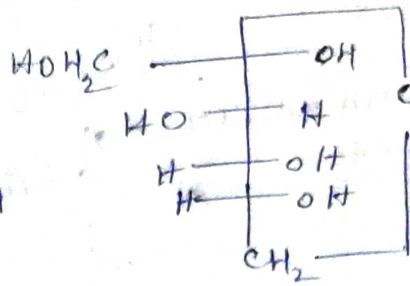 HOH2C OH
HO H O
H OH
H OH
CH2